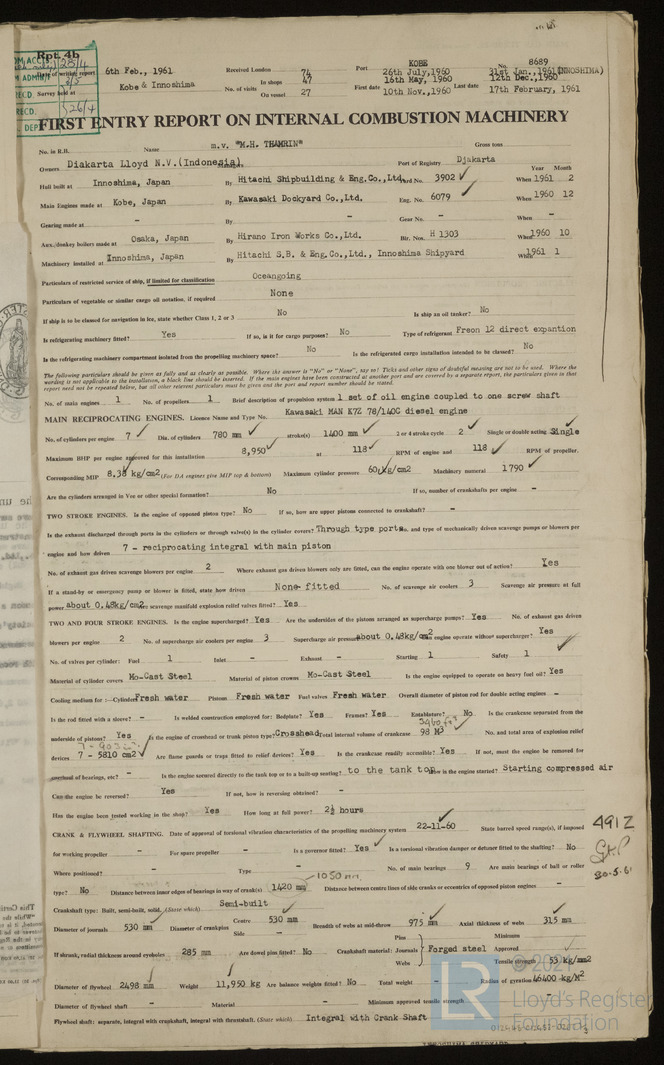 Rpt. 4b
Date of writing report 6th Feb., 1961 Received London 74 Port KOBE 26th July, 1960 No. 8689 31st Jan., 1961 (INNOSHIMA)
Survey held at Kobe & Innoshima No. of visits In shops 47 On vessel 27 First date 16th May, 1960 10th Nov., 1960 Last date 12th Dec., 1960 17th February, 1961
FIRST ENTRY REPORT ON INTERNAL COMBUSTION MACHINERY
No. in R.B. Name m.v. "M.H. THAMRIN" Gross tons
Owners Djakarta Lloyd N.V. (Indonesia) Managers Port of Registry Djakarta
Year Month
Hull built at Innoshima, Japan By Hitachi Shipbuilding & Eng.Co.,Ltd. Yard No. 3902 When 1961 2
Main Engines made at Kobe, Japan By Kawasaki Dockyard Co.,Ltd. Eng. No. 6079 When 1960 12
Gearing made at - By - Gear No. - When -
Aux./donkey boilers made at Osaka, Japan By Hirano Iron Works Co., Ltd. Blr. Nos. H 1303 When 1960 10
Machinery installed at Innoshima, Japan By Hitachi S.B. & Eng.Co., Ltd., Innoshima Shipyard When 1961 1
Particulars of restricted service of ship, if limited for classification Oceangoing
Particulars of vegetable or similar cargo oil notation, if required None
If ship is to be classed for navigation in ice, state whether Class 1, 2 or 3 No Is ship an oil tanker? No
Is refrigerating machinery fitted? Yes If so, is it for cargo purposes? No Type of refrigerant Freon 12 direct expantion
Is the refrigerating machinery compartment isolated from the propelling machinery space? No Is the refrigerated cargo installation intended to be classed? No
The following particulars should be given as fully and as clearly as possible. Where the answer is "No" or "None", say so! Ticks and other signs of doubtful meaning are not to be used. Where the
wording is not applicable to the installation, a black line should be inserted. If the main engines have been constructed at another port and are covered by a separate report, the particulars given in that
report need not be repeated below, but all other relevent particulars must be given and the port and report number should be stated.
No. of main engines 1 No. of propellers 1 Brief description of propulsion system 1 set of oil engine coupled to one screw shaft
MAIN RECIPROCATING ENGINES. Licence Name and Type No. Kawasaki MAN K7Z 78/140C diesel engine
No. of cylinders per engine 7 Dia. of cylinders 780 mm stroke(s) 1400 mm 2 or 4 stroke cycle 2 Single or double acting Single
Maximum BHP per engine approved for this installation 8,950 at 118 RPM of engine and 118 RPM of propeller.
Corresponding MIP 8.38 kg/cm2 (For DA engines give MIP top & bottom) Maximum cylinder pressure 60 kg/cm2 Machinery numeral 1790
Are the cylinders arranged in Vee or other special formation? No If so, number of crankshafts per engine -
TWO STROKE ENGINES. Is the engine of opposed piston type? No If so, how are upper pistons connected to crankshaft? -
Is the exhaust discharged through ports in the cylinders or through valve(s) in the cylinder covers? Through type ports No. and type of mechanically driven scavenge pumps or blowers per
engine and how driven 7 - reciprocating integral with main piston
No. of exhaust gas driven scavenge blowers per engine 2 Where exhaust gas driven blowers only are fitted, can the engine operate with one blower out of action? Yes
If a stand-by or emergency pump or blower is fitted, state how driven None fitted No. of scavenge air coolers 3 Scavenge air pressure at full
power about 0.48kg/cm2 Are scavenge manifold explosion relief valves fitted? Yes
TWO AND FOUR STROKE ENGINES. Is the engine supercharged? Yes Are the undersides of the pistons arranged as supercharge pumps? Yes No. of exhaust gas driven
blowers per engine 2 No. of supercharge air coolers per engine 3 Supercharge air pressure about 0.48kg/cm2 Can engine operate without supercharger? Yes
No. of valves per cylinder: Fuel 1 Inlet - Exhaust - Starting 1 Safety 1
Material of cylinder covers Mo-Cast Steel Material of piston crowns Mo-Cast Steel Is the engine equipped to operate on heavy fuel oil? Yes
Cooling medium for :—Cylinders Fresh water Pistons Fresh water Fuel valves Fresh water Overall diameter of piston rod for double acting engines -
Is the rod fitted with a sleeve? - Is welded construction employed for: Bedplate? Yes Frames? Yes Entablature? No Is the crankcase separated from the
underside of pistons? Yes Is the engine of crosshead or trunk piston type? Crosshead Total internal volume of crankcase 98 M3 No. and total area of explosion relief
devices 7 - 5810 cm2 Are flame guards or traps fitted to relief devices? Yes Is the crankcase readily accessible? Yes If not, must the engine be removed for
overhaul of bearings, etc? - Is the engine secured directly to the tank top or to a built-up seating? to the tank top How is the engine started? Starting compressed air
Can the engine be reversed? Yes If not, how is reversing obtained? -
Has the engine been tested working in the shop? Yes How long at full power? 2½ hours
CRANK & FLYWHEEL SHAFTING. Date of approval of torsional vibration characteristics of the propelling machinery system 22-11-60 State barred speed range(s), if imposed
4912
for working propeller - For spare propeller - Is a governor fitted? Yes Is a torsional vibration damper or detuner fitted to the shafting? No
Where positioned? - Type - No. of main bearings 9 Are main bearings of ball or roller
30-5-61
1050 mm.
type? No Distance between inner edges of bearings in way of crank(s) 1420 mm Distance between centre lines of side cranks or eccentrics of opposed piston engines -
Crankshaft type: Built, semi-built, solid. (State which) Semi-built
Diameter of journals 530 mm Diameter of crankpins Centre 530 mm Side - Breadth of webs at mid-throw 975 mm Axial thickness of webs 315 mm
If shrunk, radial thickness around eyeholes 285 mm Are dowel pins fitted? No Crankshaft material: Pins Journals Webs Forged steel Minimum Approved Tensile strength 53 kg/mm2
Diameter of flywheel 2498 mm Weight 11,950 kg Are balance weights fitted? No Total weight - Radius of gyration 46400 kg/M2
Diameter of flywheel shaft - Material - Minimum approved tensile strength -
Flywheel shaft: separate, integral with crankshaft, integral with thrustshaft. (State which) Integral with Crank Shaft
LR
Lloyd's Register
Foundation